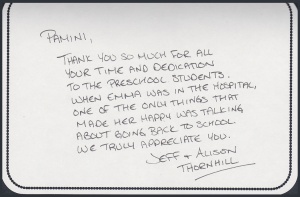 PAMINI,
THANK YOU SO MUCH FOR ALL
YOUR TIME AND DEDICATION
TO THE PRESCHOOL STUDENTS.
WHEN EMMA WAS IN THE HOSPITAL,
ONE OF THE ONLY THINGS THAT
MADE HER HAPPY WAS TALKING
ABOUT GOING BACK TO SCHOOL.
WE TRULY APPRECIATE YOU.
JEFF & ALISON
THORNHILL